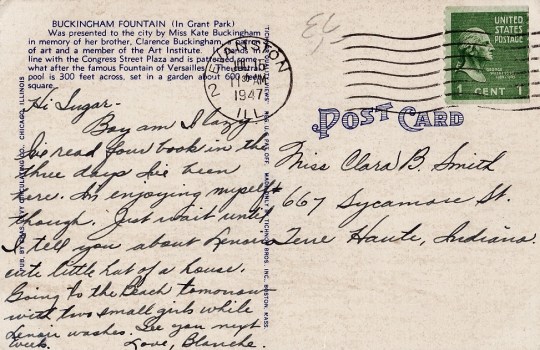 BUCKINGHAM FOUNTAIN (In Grant Park)
Was presented to the city by Miss Kate Buckingham
in memory of her brother, Clarence Buckingham, a patron
of art and a member of the Art Institute. It stands in
line with the Congress Street Plaza and is patterned some-
what after the famous Fountain of Versailles. The central
pool is 300 feet across, set in a garden about 600 feet
square.
Hi Sugar-
Boy am I lazy.
I've read four book in the
three days I've been
here. I'm enjoying myself
though. Just wait until
I tell you about Lenoir
cute little hut of a house.
Going to the Beach tomorrow
with two small girls while
Lenoir washes. See you next
week. Love, Blanche.
CHICAGO, ILLINOIS
BOSTON, MASS.
1947
ILL.
UNITED
STATES
POSTAGE
1 CENT 1
POST CARD
Miss Clara B. Smith
667 Sycamore St.
Terre Haute, Indiana.